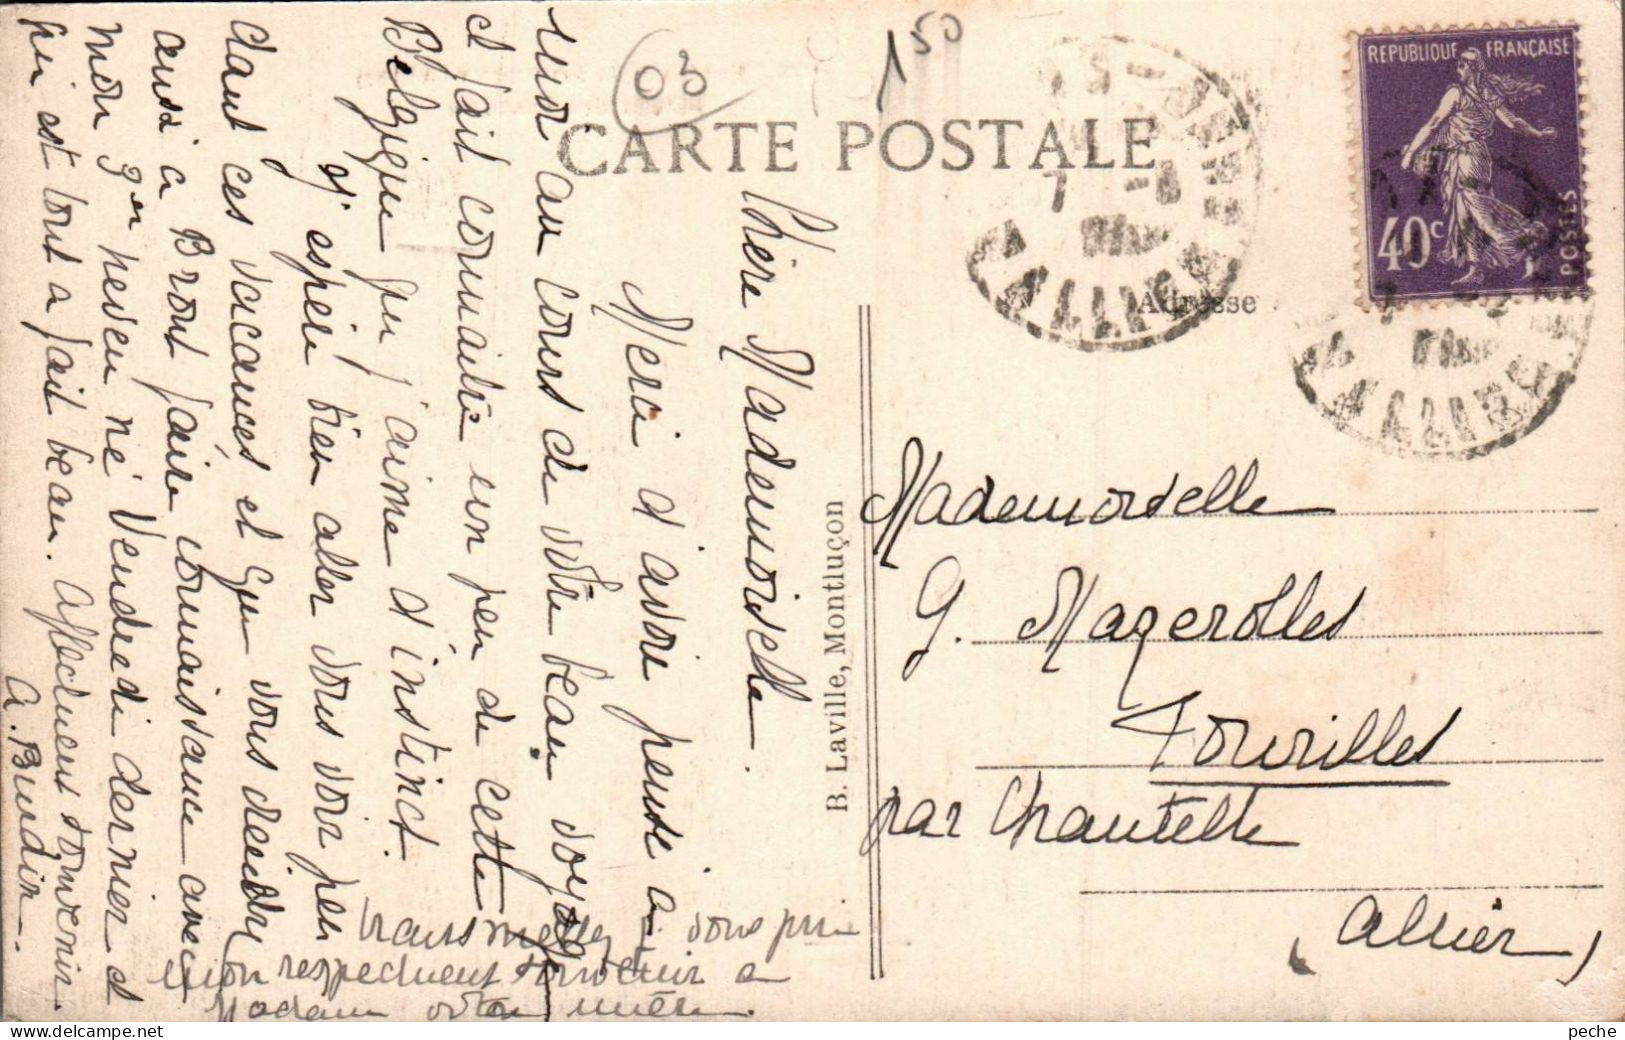 03
1 50
CARTE POSTALE
REPUBLIQUE FRANÇAISE
40c
POSTES
ALLIER
ALLIER
Adresse
B. Laville, Montluçon
Chère Mademoiselle.
Merci d'avoir pensé à
moi au cours de votre beau voyage
et fait connaître un peu de cette
Belgique que j'aime d'instinct.
J'espère bien aller vous voir pen
dant ces vacances et que vous viendrez
aussi à Brout faire connaissance avec
mon 3me neveu né Vendredi dernier et
qui est tout à fait beau. Affectueux souvenir
A. Bindin.
transmettez je vous prie
mon respectueux souvenir à
Madame votre mère.
Mademoiselle
G. Mazerolles
Fourilles
par Chantelle
(Allier)
peche